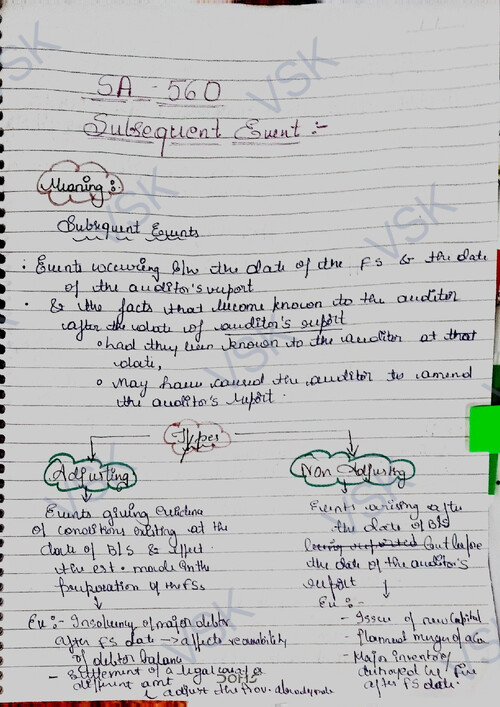 SA - 560
Subsequent Event :-
Meaning :
Subsequent Events
: Events occuring b/w the date of the FS & the date
of the auditor's report
• & the facts that become known to the auditor
after the date of auditor's report
◦ had they been known to the auditor at that
date,
◦ May have caused the auditor to amend
the auditor's report.
Types
Adjusting
Events giving evidence
of conditions existing at the
date of B/S & affect
the est. made in the
preparation of the FSs
Ex :- Insolvency of major debtor
after FS date → affects recoverability
of debtor balance
- Settlement of a legal case for a
different amt
adjust the Prov. already made
Non Adjusting
Events arising after
the date of B/S
but before
the date of the auditor's
report
Ex :-
- Issue of new Capital
- Planned merger of a co
- Major inventory
destroyed by fire
after FS date.
VSK
VSK
VSK
VSK
VSK
VSK
VSK